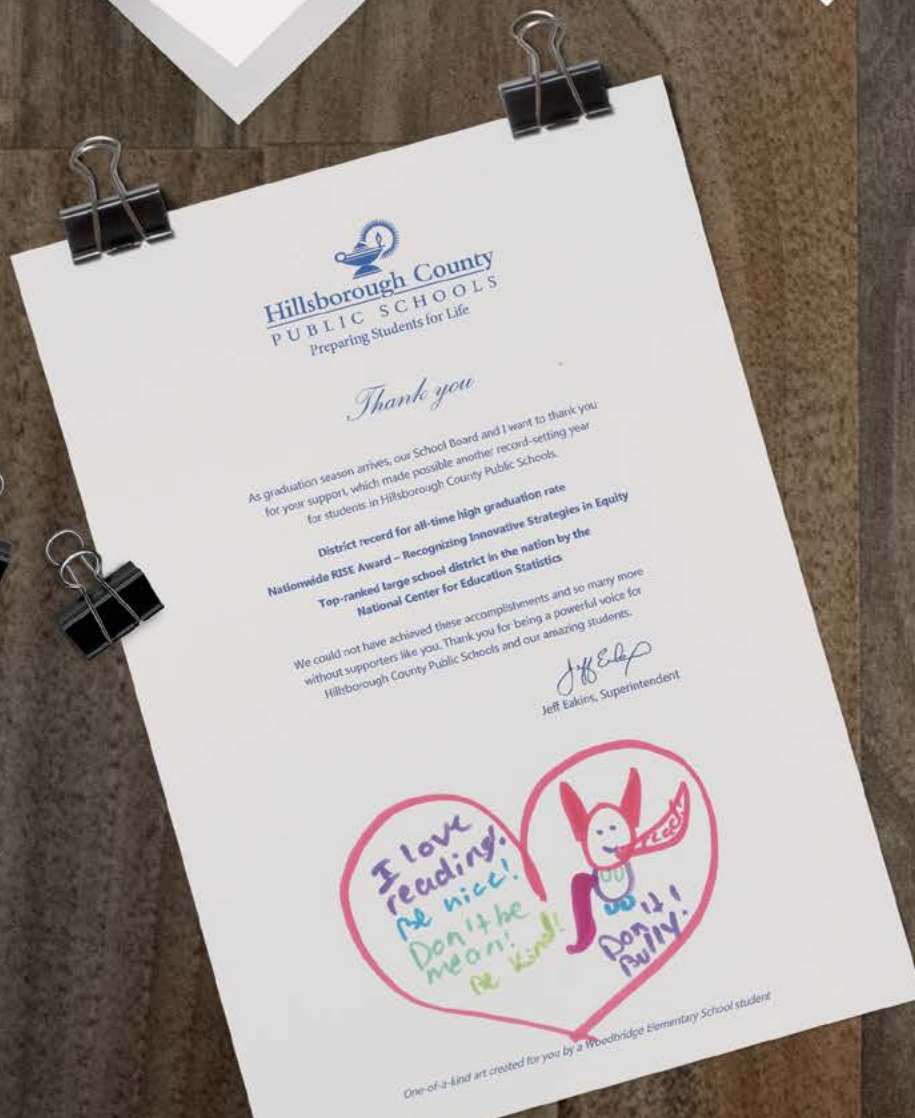 Hillsborough County
PUBLIC SCHOOLS
Preparing Students for Life
Thank you
As graduation season arrives, our School Board and I want to thank you
for your support, which made possible another record-setting year
for students in Hillsborough County Public Schools.
District record for all-time high graduation rate
Nationwide RISE Award – Recognizing Innovative Strategies in Equity
Top-ranked large school district in the nation by the
National Center for Education Statistics
We could not have achieved these accomplishments and so many more
without supporters like you. Thank you for being a powerful voice for
Hillsborough County Public Schools and our amazing students.
Jeff Eakins, Superintendent
I love
reading.
Be nice!
Don't be
mean!
Be Kind!
reed!
Don't!
Bully!
One-of-a-kind art created for you by a Woodbridge Elementary School student